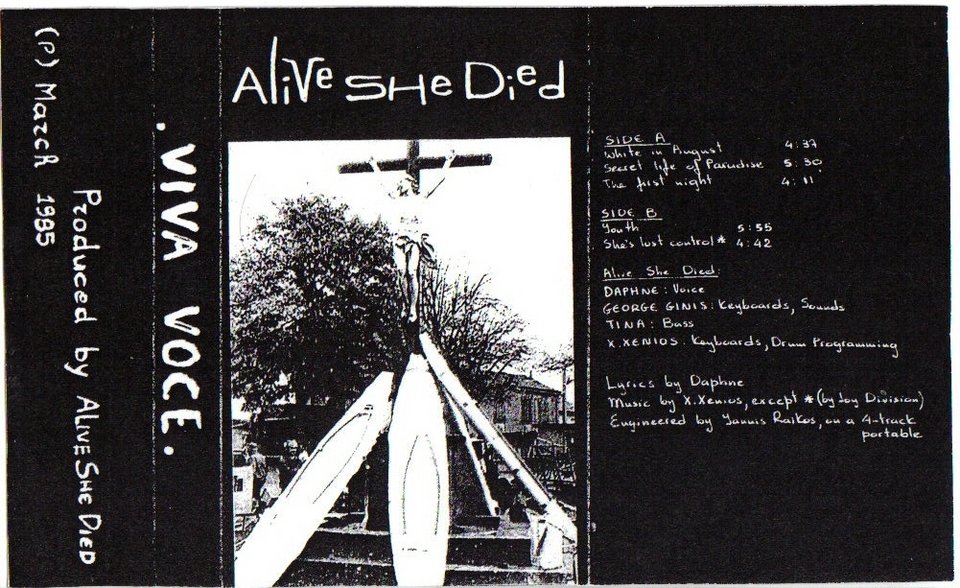 (P) March 1985
Produced by Alive She Died
. VIVA VOCE .
Alive She Died
SIDE A
White in August 4:37
Secret life of Paradise 5:30
The first night 4:11
SIDE B
Youth 5:55
She's lost control* 4:42
Alive She Died:
DAPHNE: Voice
GEORGE GINIS: Keyboards, Sounds
TINA: Bass
X.XENIOS: Keyboards, Drum Programming
Lyrics by Daphne
Music by X.Xenios, except * (by Joy Division)
Engineered by Jannis Raikos, on a 4-track
portable